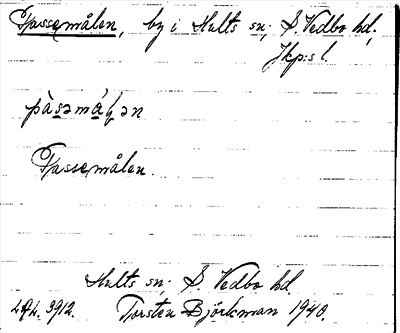 Passemålen, by i Hults sn, S. Vedbo hd,
Jkp:s l.
Passemålen.
Hults sn. S. Vedbo hd.
3912. Torsten Björkman 1940.